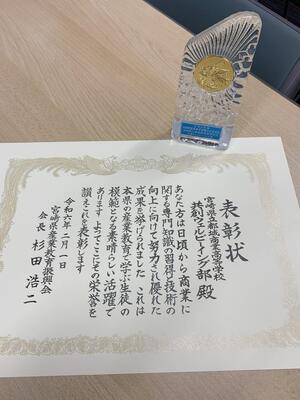 表彰状
宮崎県立都城商業高等学校
共創ウェルビーイング部 殿
あなた方は日頃から商業に
関する専門知識の習得と技術の
向上に向けて努力され優れた
成果を挙げられました これは
本県の産業教育で学ぶ生徒の
模範となる素晴らしい活躍で
あります よってここにその栄誉を
讃えこれを表彰します
令和六年二月一日
宮崎県産業教育振興会
会長 杉田浩二